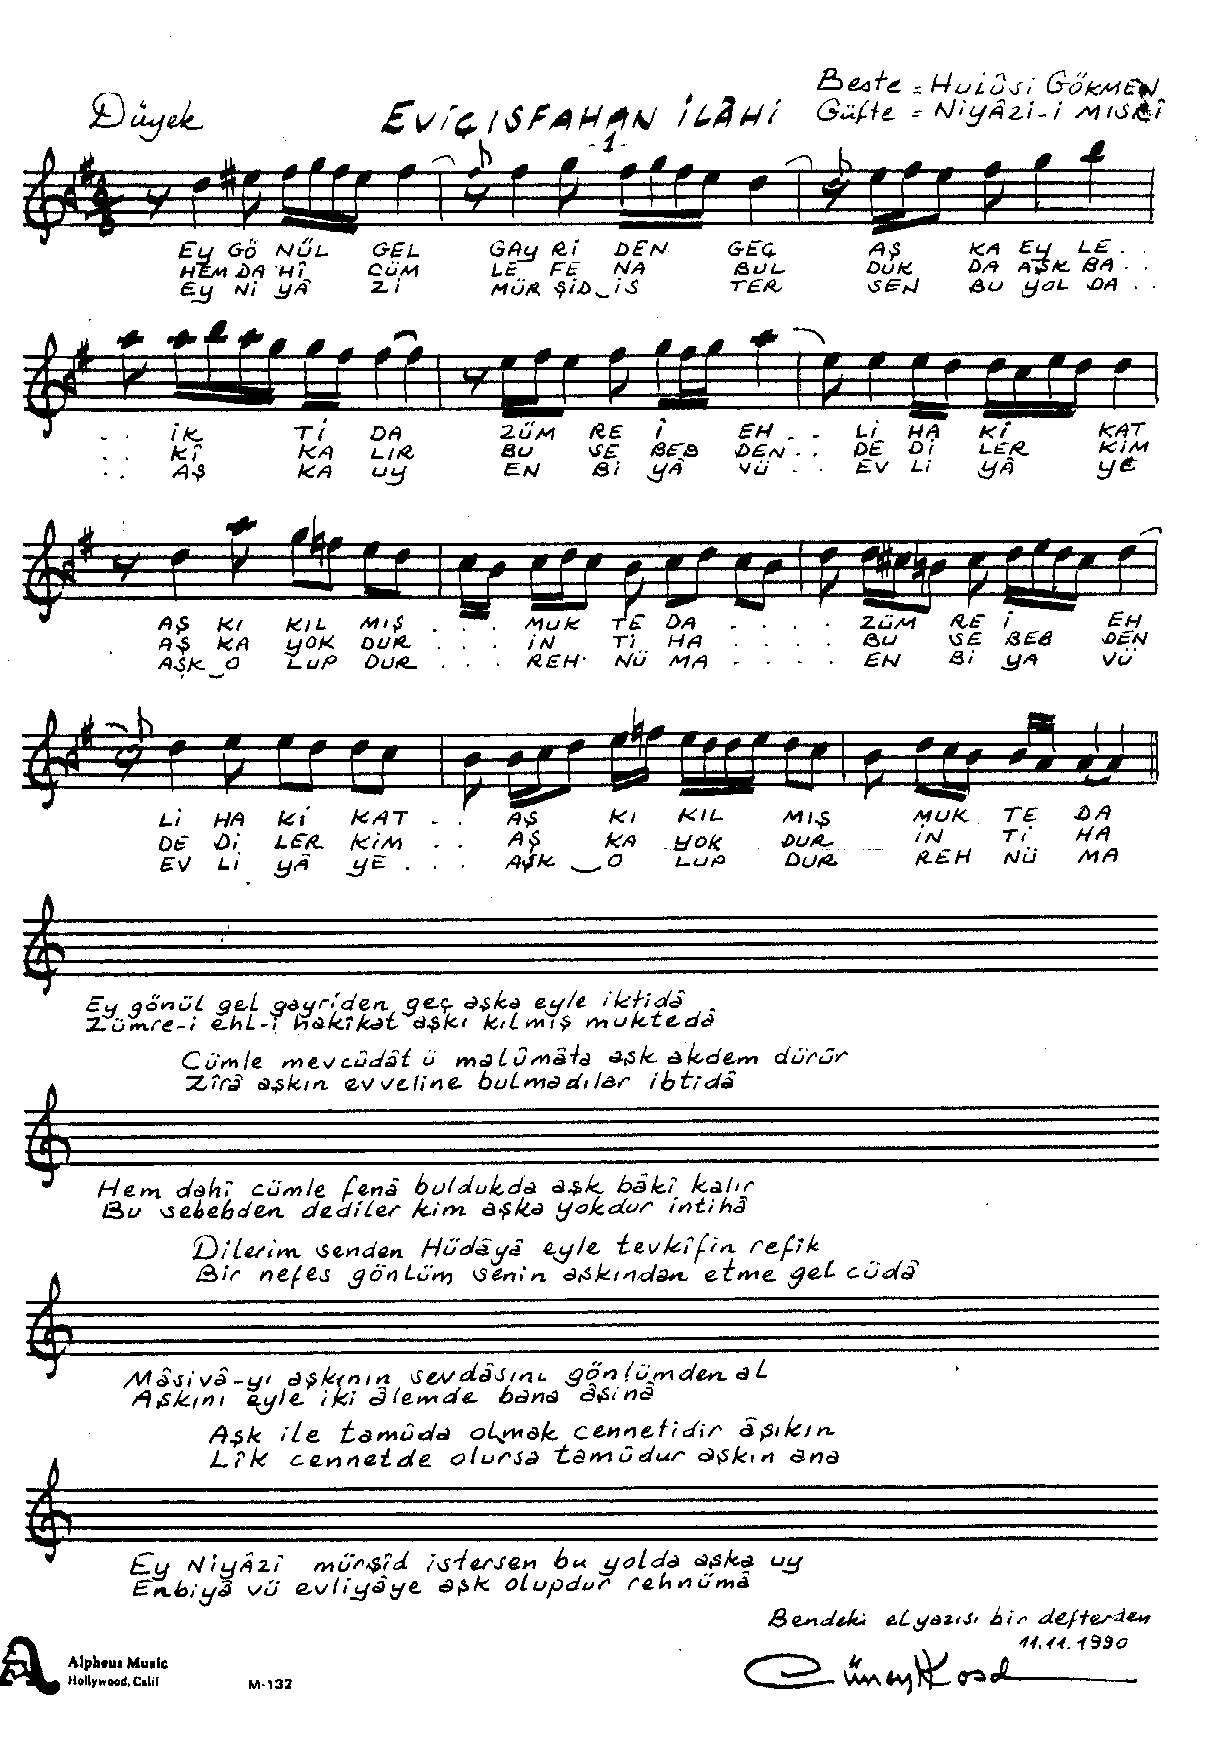 Düyek
EVİÇISFAHAN İLÂHİ
Beste = HULÛSİ GÖKMEN
Güfte = NİYÂZİ-İ MISRÎ
-1-
EY GÖ NÜL GEL GAY Rİ DEN GEÇ AŞ KA EY LE . .
HEM DA HÎ CÜM LE FE NA BUL DUK DA AŞK BA . .
EY Nİ YÂ Zİ MÜR ŞİD_İS TER SEN BU YOL DA . .
. . İK Tİ DA ZÜM RE İ EH . . Lİ HA Kİ KAT
. . KÎ KA LIR BU SE BEB DEN . . DE Dİ LER KİM
. . AŞ KA UY EN Bİ YÂ VÜ . . EV Lİ YÂ YE
AŞ KI KIL MIŞ . . . MUK TE DA . . . . ZÜM RE İ EH
AŞ KA YOK DUR . . . İN Tİ HA . . . . BU SE BEB DEN
AŞK_O LUP DUR . . . REH NÜ MA . . . . EN Bİ YA VÜ
Lİ HA Kİ KAT . . AŞ KI KIL MIŞ MUK TE DA
DE Dİ LER KİM . . AŞ KA YOK DUR İN Tİ HA
EV Lİ YÂ YE . . . AŞK_O LUP DUR REH NÜ MA
Ey gönül gel gayriden geç aşka eyle iktidâ
Zümre-i ehl-i hakîkat aşkı kılmış muktedâ
Cümle mevcûdât ü malûmâta aşk akdem dürür
Zîrâ aşkın evveline bulmadılar ibtidâ
Hem dahî cümle fenâ buldukda aşk bâkî kalır
Bu sebebden dediler kim aşka yokdur intihâ
Dilerim senden Hüdâyâ eyle tevkîfin refîk
Bir nefes gönlüm senin aşkından etme gel cüdâ
Mâsivâ-yı aşkının sevdâsını gönlümden al
Aşkını eyle iki âlemde bana âşinâ
Aşk ile tamûda olmak cennetidir âşıkın
Lîk cennetde olursa tamûdur aşkın ana
Ey Niyâzî mürşîd istersen bu yolda aşka uy
Enbiyâ vü evliyâye aşk olupdur rehnümâ
Bendeki elyazısı bir defterden
11.11.1990
Alpheus Music
Hollywood, Calif
M-132